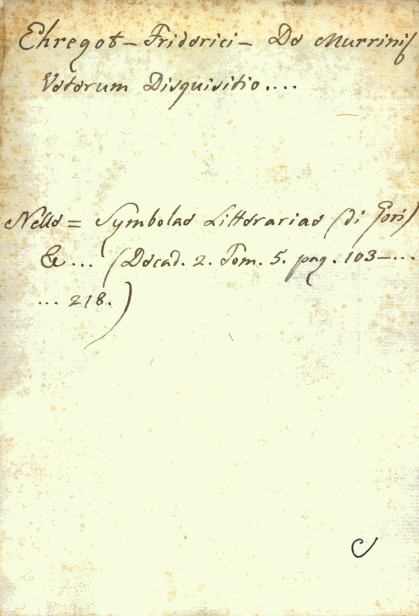 Ehregot - Friderici - De Murrinis
Veterum Disquisitio....
Nelle = Symbolae Litterariae (di Gori)
&... (Decad. 2. Tom. 5. pag. 103 - ...
... 218.)
C